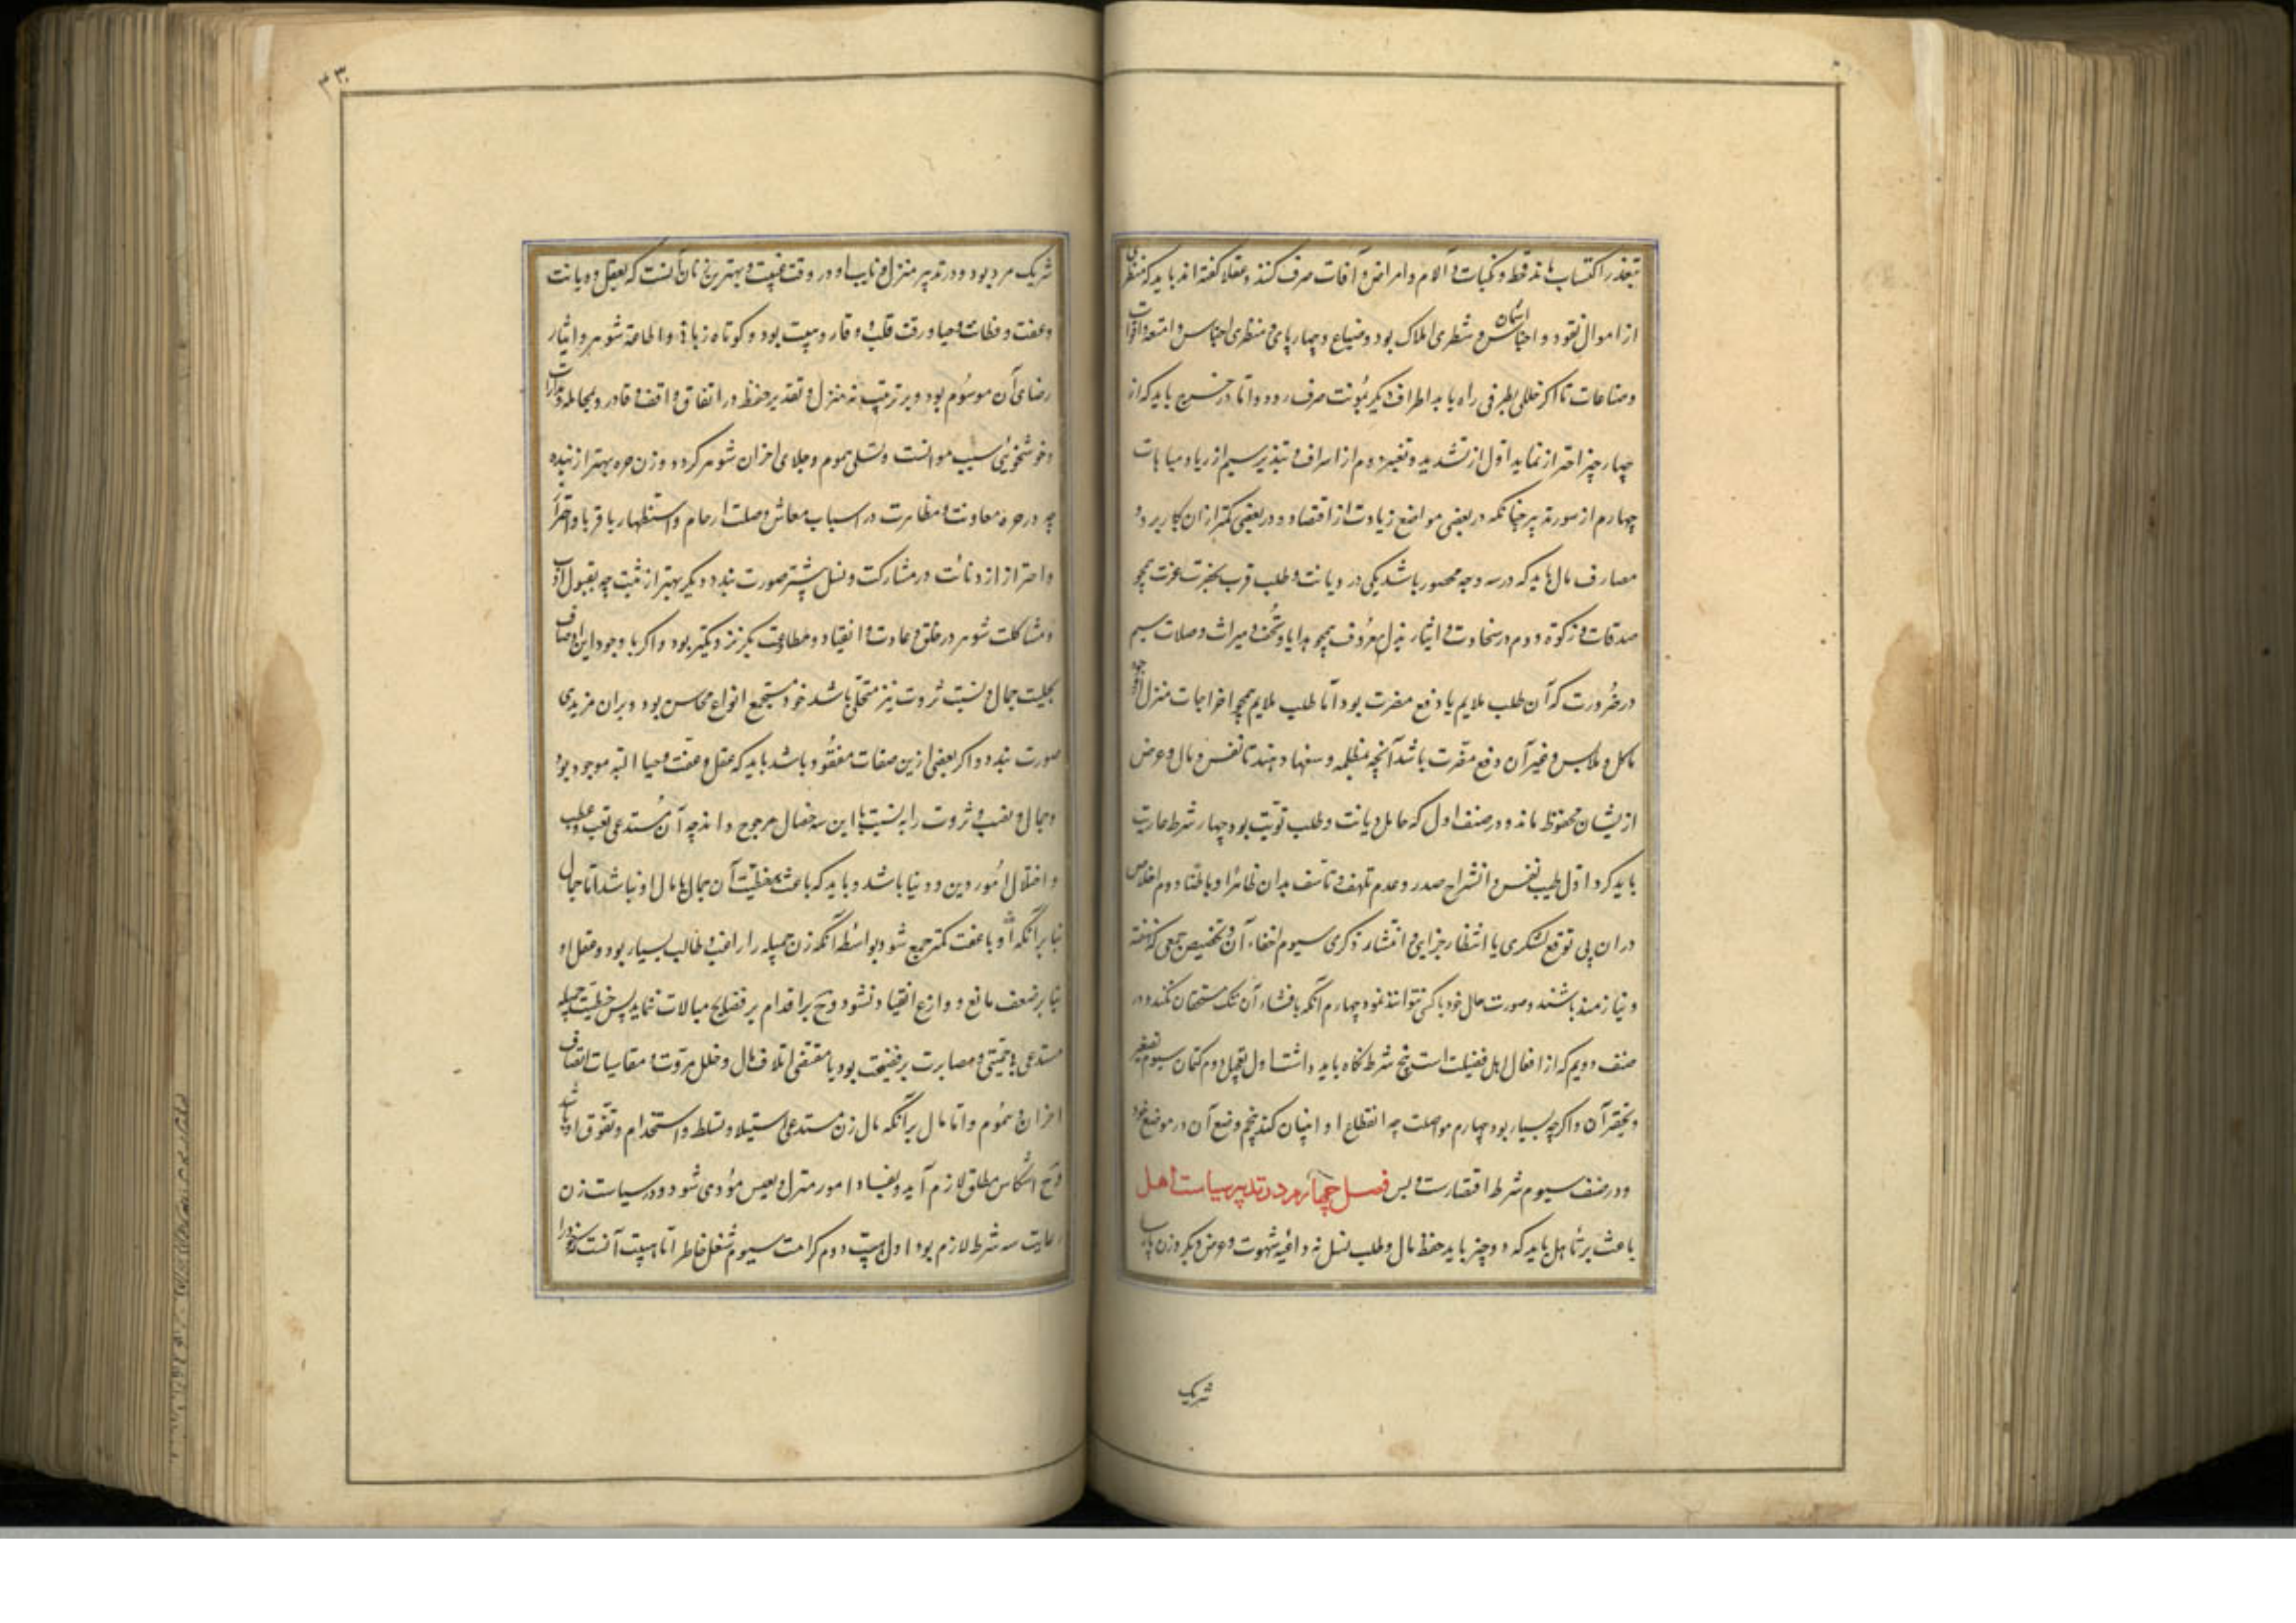 بتعذر اکتساب ماند قحط و نکبات و آلام و امراض و آفات صرف کنند و عقلا گفته اند باید که شطری
از اموال نقود و اجناس اثمان و شطری املاک بود و ضیاع و چهارپای و شطری اجناس و امتعه و اقوات
و صناعات تا اکر خللی بطرفی راه یابد اطراف دیکر بمونت صرف رود و اما در خرج باید که از
چهار چیز احتراز نماید اول از تشدید و تقتیر دوم از اسراف و تبذیر سیم از ریا و مباهات
چهارم از سو تدبیر چنانکه در بعضی مواضع زیادت از اقتصاد و در بعضی کمتر از ان کار برد و
مصارف مال باید که در سه وجه محصور باشد یکی در دیانت و طلب قرب بحضرت عزت همچو
صدقات و زکوة دوم در سخاوت و ایثار بذل معروف همچو هدایا و تحف و میراث و صلات سیم
در ضرورت که آن طلب ملایم یا دفع مضرت بود اما طلب ملایم همچو اخراجات منزل از وجه
ماکل و ملابس و غیر آن و دفع مضرت باشد آنچه بظلمه و سفها دهند تا نفس و مال و عرض
از یشان محفوظ ماند و در صنف اول که حامل دیانت و طلب تویت بود چهار شرط رعایت
باید کرد اول طیب نفس و انشراح صدر و عدم تلهف و تاسف بدان ظاهرا و باطنا دوم اخلاص
در ان بی توقع تشکری یا انتظار جزایی و انتشار ذکری سیوم اخفاء آن و تخصیص جمعی که نهفته
و نیازمند باشند و صورت حال خود با کس نتوانند نمود چهارم آنکه بافشاء آن هتک مستحقان نکند و در
صنف دویم که از افعال اهل فضیلت است پنج شرط نکاه باید داشت اول تعجیل دوم کتمان سیوم تصغیر
و تحقیر آن و اکرچه بسیار بود چهارم مواصلت چه انقطاع او انسان کند پنجم وضع آن در موضع خود
و در صنف سیوم شرط اقتصار ست و بس فصل چهارم در تدبیر سیاست اهل
باعث بر تاهل باید که دو چیز باید حفظ مال و طلب نسل نه داعیه شهوت و عرض دیکر و زن باید
شریک
۳۰۳
شریک مرد بود و در تدبیر منزل و نایب او در وقت غیبت و بهترین زنان آنست که بعقل و دیانت
و عفت و فطنت و حیا و رقت قلب و وقار و هیبت بود و کوتاه زبان و اطاعة شوهر و ایثار
رضای آن موسوم بود و بر ترتیب منزل و تقدیر حفظ در انفاق واقف و قادر و بمجامله و مدارات
و خوشخویی سبب موانست و تسلی هموم و جلای احزان شوهر کردد و زن حره بهتر از بنده
چه در حره معاونت و مظاهرت در اسباب معاش و صلت ارحام و استظهار باقربا و احتراز
و احتراز از دنائت در مشارکت و نسل بیشتر صورت بندد و بکر بهتر از ثیب چه بقبول ادب
و مشاکلت شوهر در خلق و عادت و انقیاد و مطاوعت بکر نزدیکتر بود و اکر با وجود این اوصاف
بحلیت جمال و نسبت ثروت نیز متحلی باشد خود مستجمع انواع محاسن بود و بران مزیدی
صورت نبندد و اکر بعضی ازین صفات مفقود باشد باید که عقل و عفت و حیا البته موجود بود
و جمال و نسب و ثروت را به نسبت با این سه خصال مرجوح داند چه آن مستدعی تعب و عطب
و اختلال امور دین و دنیا باشد و باید که باعث آن جمال یا مال او نباشد اما جمال
بنا برآنکه او با عفت کمتر جمع شود بواسطه آنکه زن جمیله را راغب و طالب بسیار بود و عقل او
بنا بر ضعف مانع و وازع انقیاد نشود و بر اقدام بر فضایح مبالات ننماید پس خطبت جمیله
مستدعی بی حمیتی و مصابرت بر فضیحت بود یا مقتضی اتلاف مال و خلل مروت و مقاسیات اصناف
احزان و هموم و اما مال برآنکه مال زن مستدعی استیلا و تسلط و استخدام و تفوق او باشد
انتکاس مطلق لازم آید و بفساد امور منزل و تعیش مؤدی شود و در سیاست زن
رعایت سه شرط لازم بود اول هیبت دوم کرامت سیوم شغل خاطر اما هیبت آنست که خود را